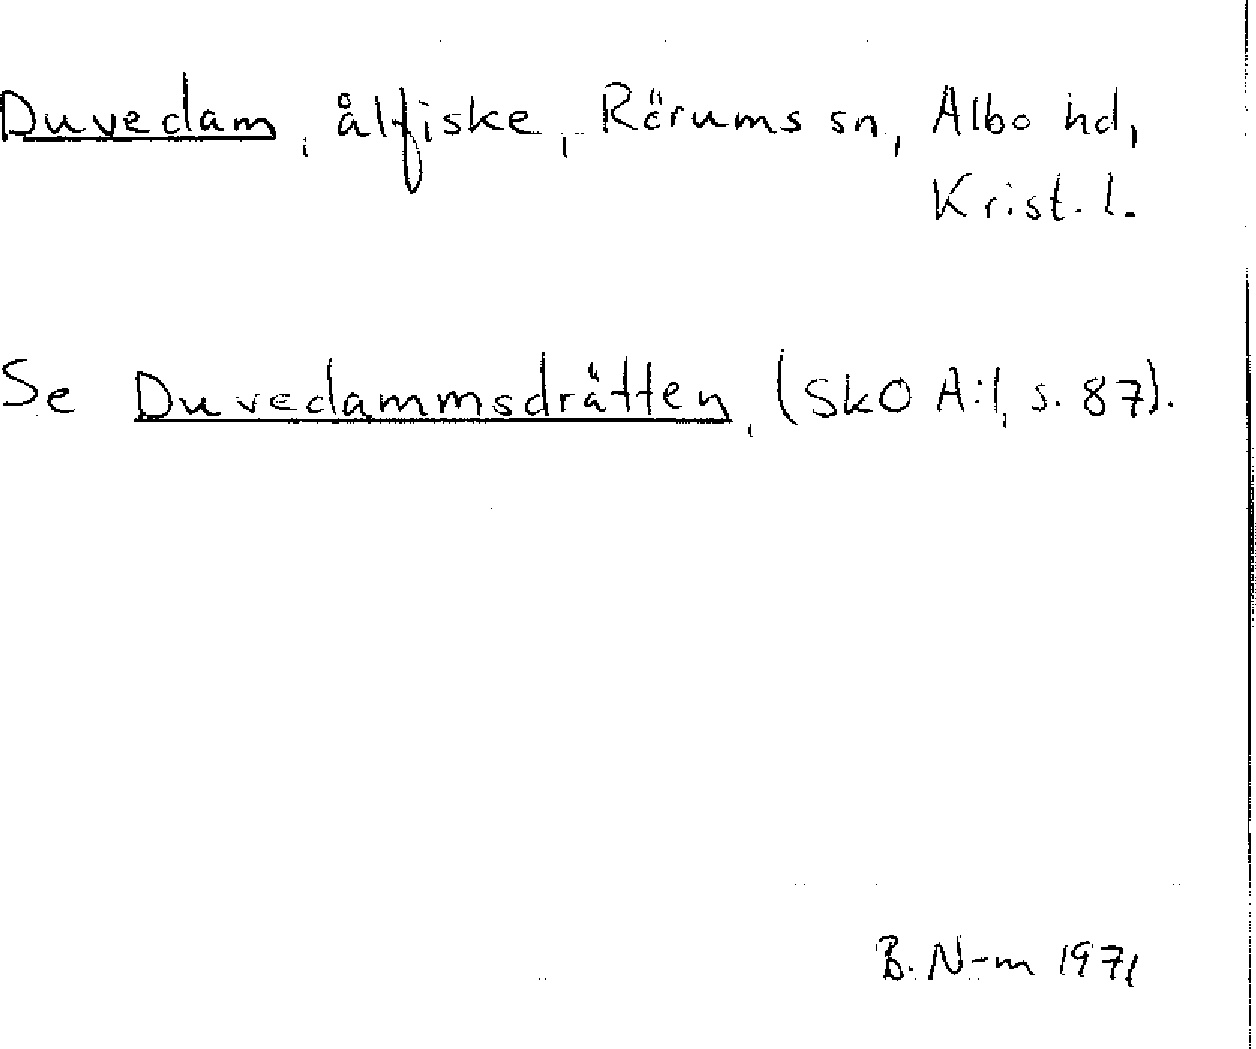 Duvedam, ålfiske, Rörums sn, Albo hd,
Krist. l.
Se Duvedammsdrätten, (SkO A:1, s. 87).
B. N-m 1971